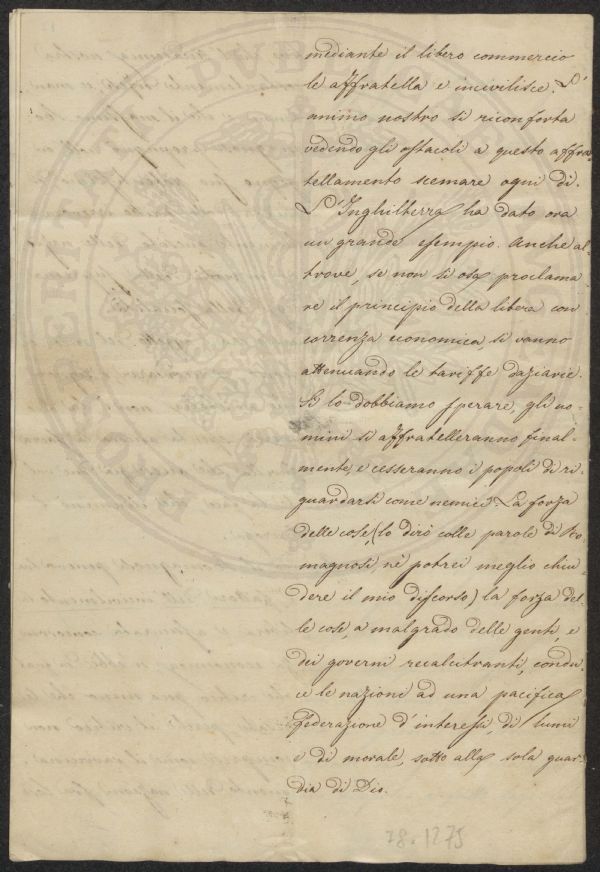 mediante il libero commercio
le affratella e incivilisce. L'
animo nostro si riconforta
vedendo gli ostacoli a questo affra-
tellamento scemare ogni dì.
L'Inghilterra ha dato ora
un grande esempio. Anche al-
trove, se non si osa proclama-
re il principio della libera con
correnza economica, si vanno
attenuando le tariffe daziarie.
lo dobbiamo sperare, gli uo-
mini si affratelleranno final-
mente, e cesseranno i popoli di ri
guardarsi come nemici. La forza
delle cose, (lo dirò colle parole di Ro
magnosi, nè potrei meglio chiu
dere il mio discorso) la forza del-
le cose, a malgrado delle genti, e
dei governi recalcitranti, condu-
ce le nazioni ad una pacifica
federazione d'interessi, di lumi
e di morale, sotto alla sola guar-
dia di Dio.
78.1275